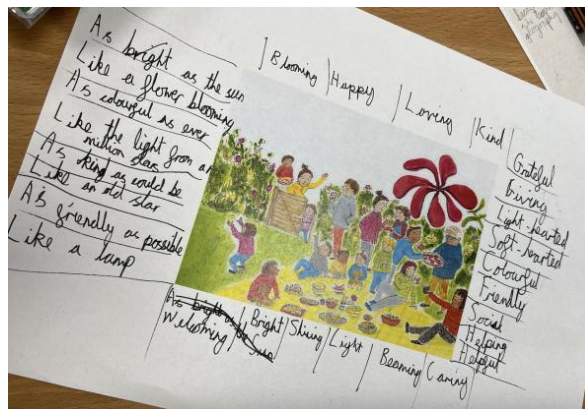 As bright as the sun
Like a flower blooming
As colourful as ever
Like the light from a
million stars
As kind as could be
Like an old star
As friendly as possible
Like a lamp
Blooming
Happy
Loving
Kind
Grateful
Giving
Light-hearted
Soft-hearted
Colourful
Friendly
Social
Helping
Helpful
As bright as the Sun
Welcoming
Bright
Shining
Light
Beaming
Caring